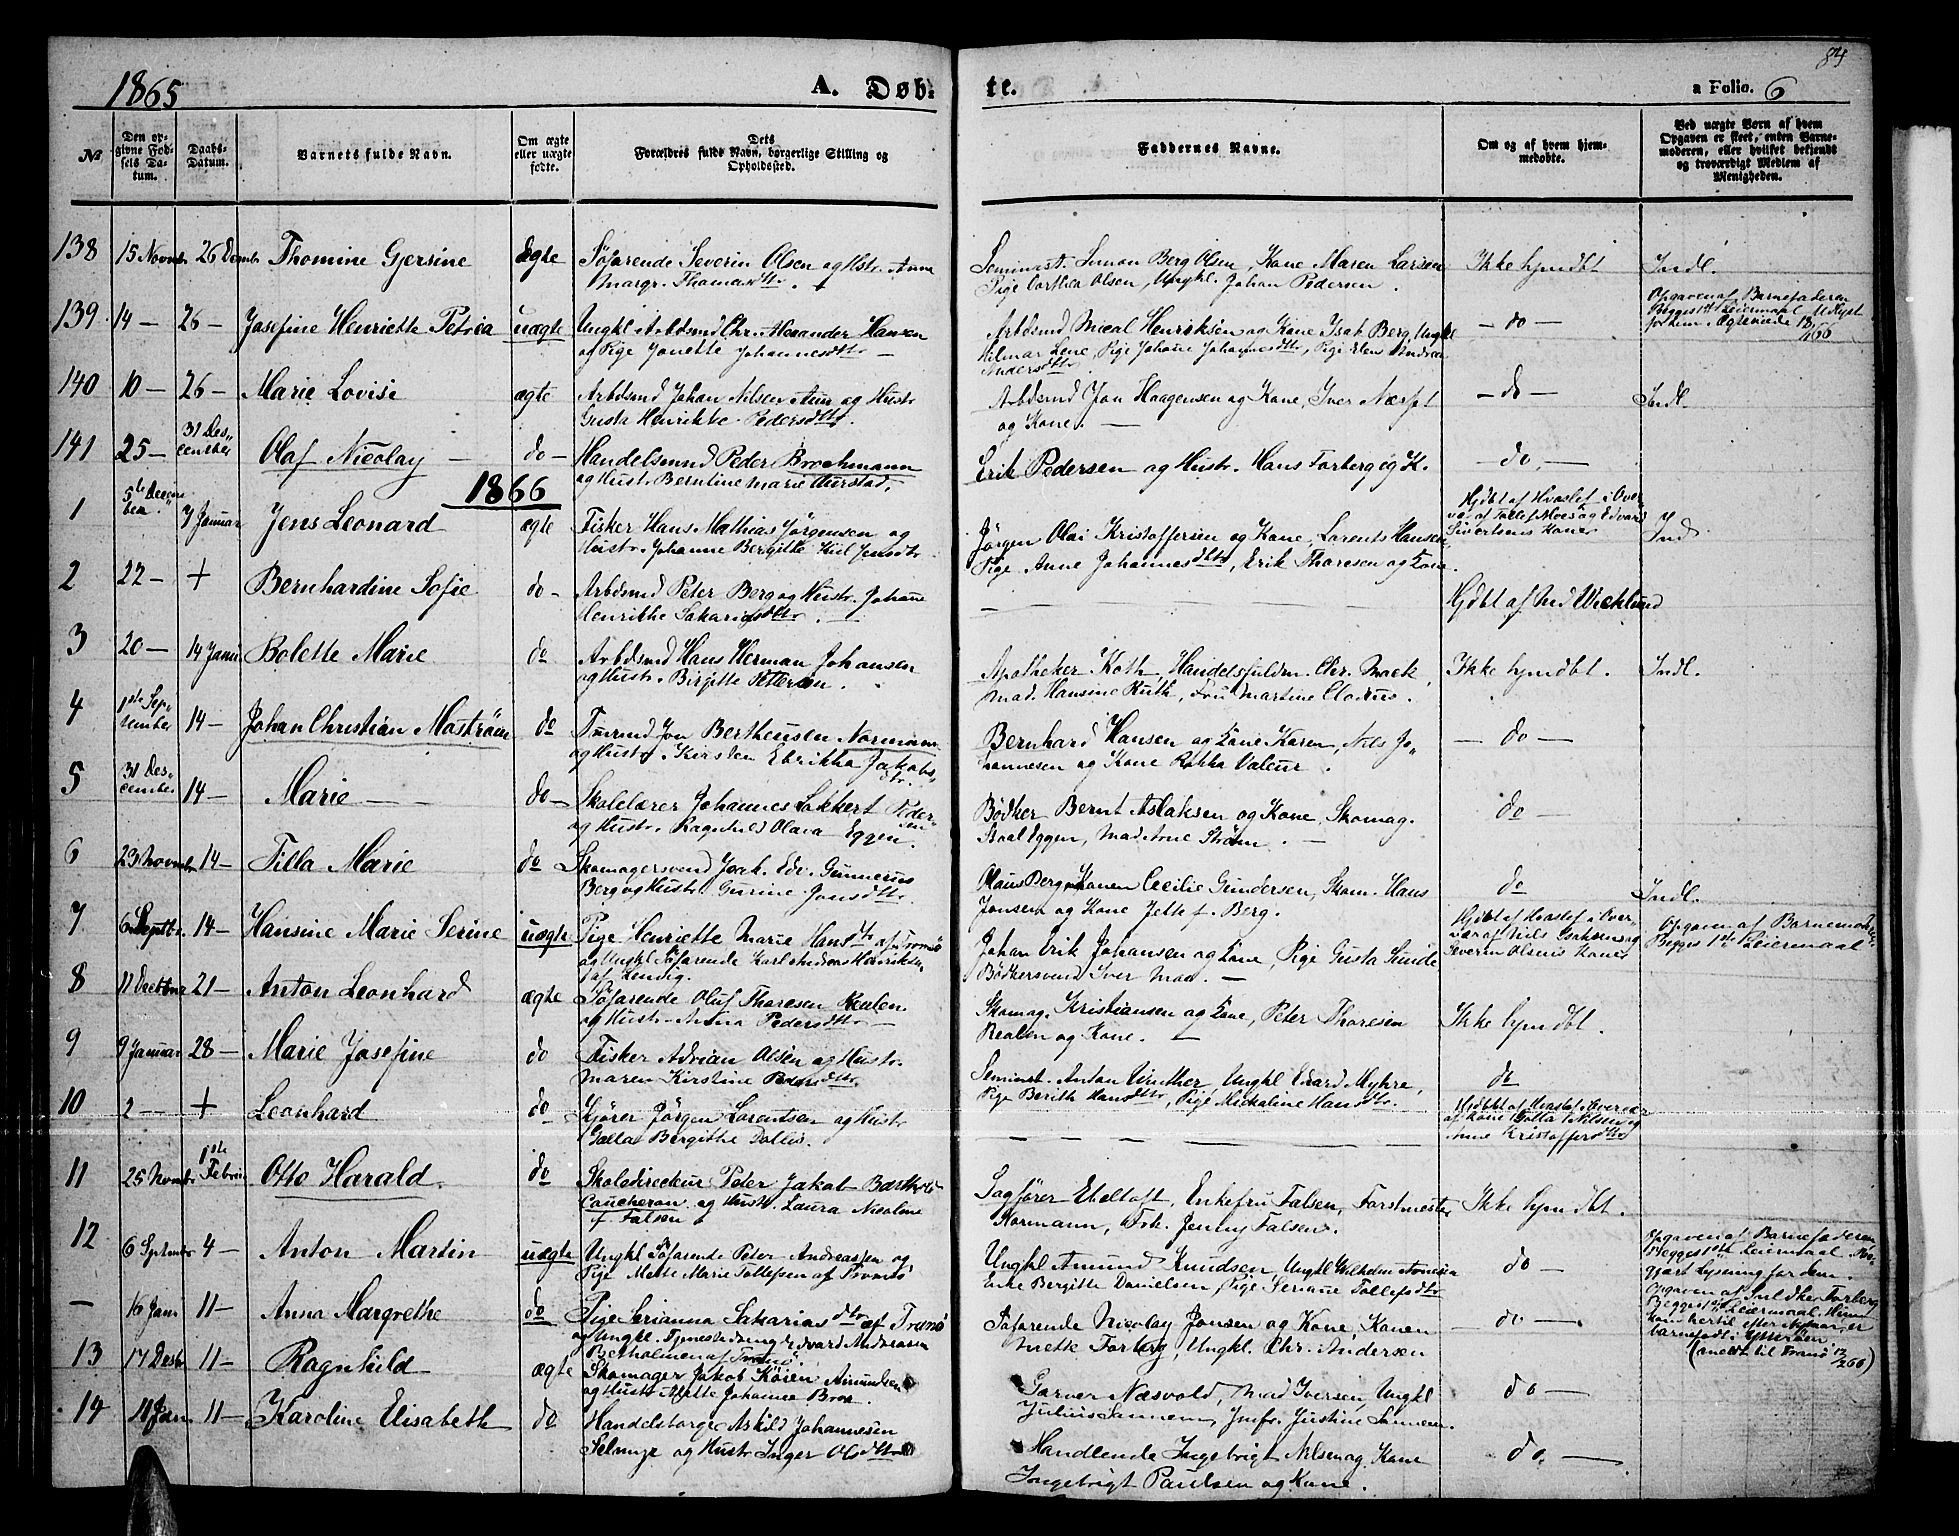 84
1865
A. Døb-
te.
a Folio. 6
№
Den op-
givne Fød-
sels Da-
tum.
Daabs-
Datum.
Barnets fulde Navn.
Om ægte
eller uægte
fødte.
Dets
Forældres fulde Navn, borgerlige Stilling og
Opholdssted.
Faddernes Navne.
Om og af hvem hjem-
medøbte.
Ved uægte Børn af hvem
Opgaven er skeet, enten Barne-
moderen, eller hvilket bekjendt
og troværdigt Medlem af
Menigheden.
138 15 Novmbr 26 Dembr Thomine Gjersine ægte Søfarende Severin Olsen og Hstr. Anne
Margr. Thomasdtr.
Seminast. Simon Berg Olsen, Kone Maren Larsen
Pige Dorthea Olsen, Ungkl. Johan Pedersen.
Ikke hjmdbt Indl.
139. 14 — 26 — Josefine Henriette Petrea uægte Ungkl Arbdsmd Chr. Alexander Hansen
af Pige Jonette Johannesdtr —
Arbdsmd Mical Henriksen og Kone Isab. Berg, Ungkl
Hilmar Lene, Pige Johane Johannesdtr, Pige Elen Andrea
Andersdtr
— do — Opgaven af Barnefaderen
Begges 1ste Leiermaal
140 10 — 26 — Marie Lovise ægte Arbdsmd Johan Nilsen Aune og Hustr
Gusta Henrikke Pedersdtr.
Arbdsmd Jon Haagensen og Kone, Iver
og Kone. —
— do — Indl.
141 25 — 31 Des„
cember Olaf Nicolay — do — Handelsmnd Peder Brochmann
og Hustr. Berntine Marie Hurstad,
Erik Pedersen og Hustr. Hans Forberg og K.
— do —
1866
1 5te Decem
ber 7 Januar Jens Leonard ægte Fisker Hans Mathias Jørgensen og
Hustr. Johanne Bergitte Kiil Jensdtr
Jørgen Olai Kristoffersen og Kone, Lorents Hansen,
Pige Anne Johannesdtr, Erik Thoresen og Kone.
Hjdbt af
af Tollef Moes og Edvard
Sivertsens Koner Ind
2 22 — + Bernhardine Sofie do — Arbdsmd Peter Berg og Hustr. Johane
Henrikke Sakariasdtr. —
— — — — —
Hjdbt af Md Wicklund
3 20 — 14 Janu Bolette Marie do Arbdsmd Hans Herman Johansen
og Hustr. Birgitte Pettersen.
Apotheker Koth, Handelsfuldm. Chr. Mack,
Mad. Hansine Kuth, Fru Martine Clodius.
Ikke hjmdbt. Indl.
4 1ste Sep„
tember 14 — Johan Christian Mostrøm do Jon Bertheusen Normann
og Hustr. Kirsten Ebrikka Jakobs„
dtr.
Bernhard Hansen og Kone Karen, Nils Jo„
hannesen og Kone Valeur.
— do —
5 31 Des„
cember 14 — Marie — — do — Skolelærer Johannes Lokkert Peder„
sen
og Hustr. Ragnhild Olava Eggen.
Bødker Bernt Aslaksen og Kone, Skomag.
Eggen, Mad. Arne Strøm. —
do —
6 23 Novmbr 14 — Tilla Marie do Skomagersvend Joak. Edv. Gunnerus
Berg og Hustr. Gurine Jonsdtr.
Olaus Berg Konen Cecilie Gundersen, Skom. Hans
Jonsen og Kone Jette f. Berg.
do Indl.
7 6 Septbr. 14 — Hansine Marie Serine uægte Pige Henriette Marie Hansdtr af Tromsø
og Ungkl Søfarende Karl Andreas Henriksen
af Hendig.
Johan Erik Johansen og Kone, Pige Gusta Sunde
Bødkersvend Iver Moa. —
Hjdbt af
af Niels Isaksens og
Severin Olsens Koner
Opgaven af Barnemoderen
Begges 1ste Leiermaal
8 11 Decbr 21 — Anton Leonhard ægte Søfarende Oluf Thoresen Realen
og Hustr. Anna Pedersdtr —
Skomag. Kristiansen og Kone, Peter Thoresen
Realen og Kone. —
Ikke hjmdbt.
9 9 Januar 28 — Marie Josefine do Fisker Adrian Olsen og Hustr.
Maren Kirstine Pedersdtr.
Seminst. Anton Winther, Ungkl Edvard Myhre,
Pige Berith Hansdtr, Pige Mickaline Hansdtr.
do
10 2 — + Leonhard do — Kjører Jørgen Lorentsen og Hustr
Golla Bergithe Dollis.
— — — — —
Hjdbt af
Nilsen og
Anne Kristoffersdtr
11 25 Novmbr 1ste
Februar Otto Harald. do Skoledirecteur Peter Jakob Barthold
Caucheron og Hustr. Laura Nicoline
f. Falsen
Sagfører Ebeltoft, Enkefru Falsen, Forstmester
Normann, Frk. Jenny Falsen.
Ikke hjmdbt.
12 6 Septmbr 4 — Anton Martin uægte Ungkl Søfarende Peter Andreassen og
Pige Mette Marie Tollefsen af Tromsø
Ungkl Amund Knudsen, Ungkl Wilhelm Arnesen
Enke Bergitte Danielsen, Pige Seriane Tollefsdtr
do —
Opgaven af Barnefaderen
Begges 1ste Leiermaal.
gjort Lysning for dem.
— 16 Janr 11 — Anna Margrethe do Pige Serianna Sakariasdtr af Tranø
og Ungkl. Tjenestedreng Edvard Andreasen
Betholmen af Tranø.
Søfarende Nicolay Jonsen og Kone, Konen
Mette Forberg, Ungkl. Chr. Andersen
do —
Opgaven af Forberg
Begges 1ste Leiermaal. Hun
kom hertil efter Nytaar, er
barnefødt i
(anmeldt til Tranø 12/2 66)
13 17 Desbr 11 — Ragnhild ægte Skomager Jakob Køien Amundsen
og Hustr. Mette Johanna Broe.
Garver Næsvold, Mad Iversen, Ungkl
Julius Sannem, Jmfr. Justine Sannem.
do —
14 11 Jan 11 — Karoline Elisabeth do Handelsborger Askild Johannesen
Selmyr og Hustr Inger Olsdtr
Handlende Ingebrigt Nilsen og Kone
Ingebrigt Paulsen og Kone.
do. —